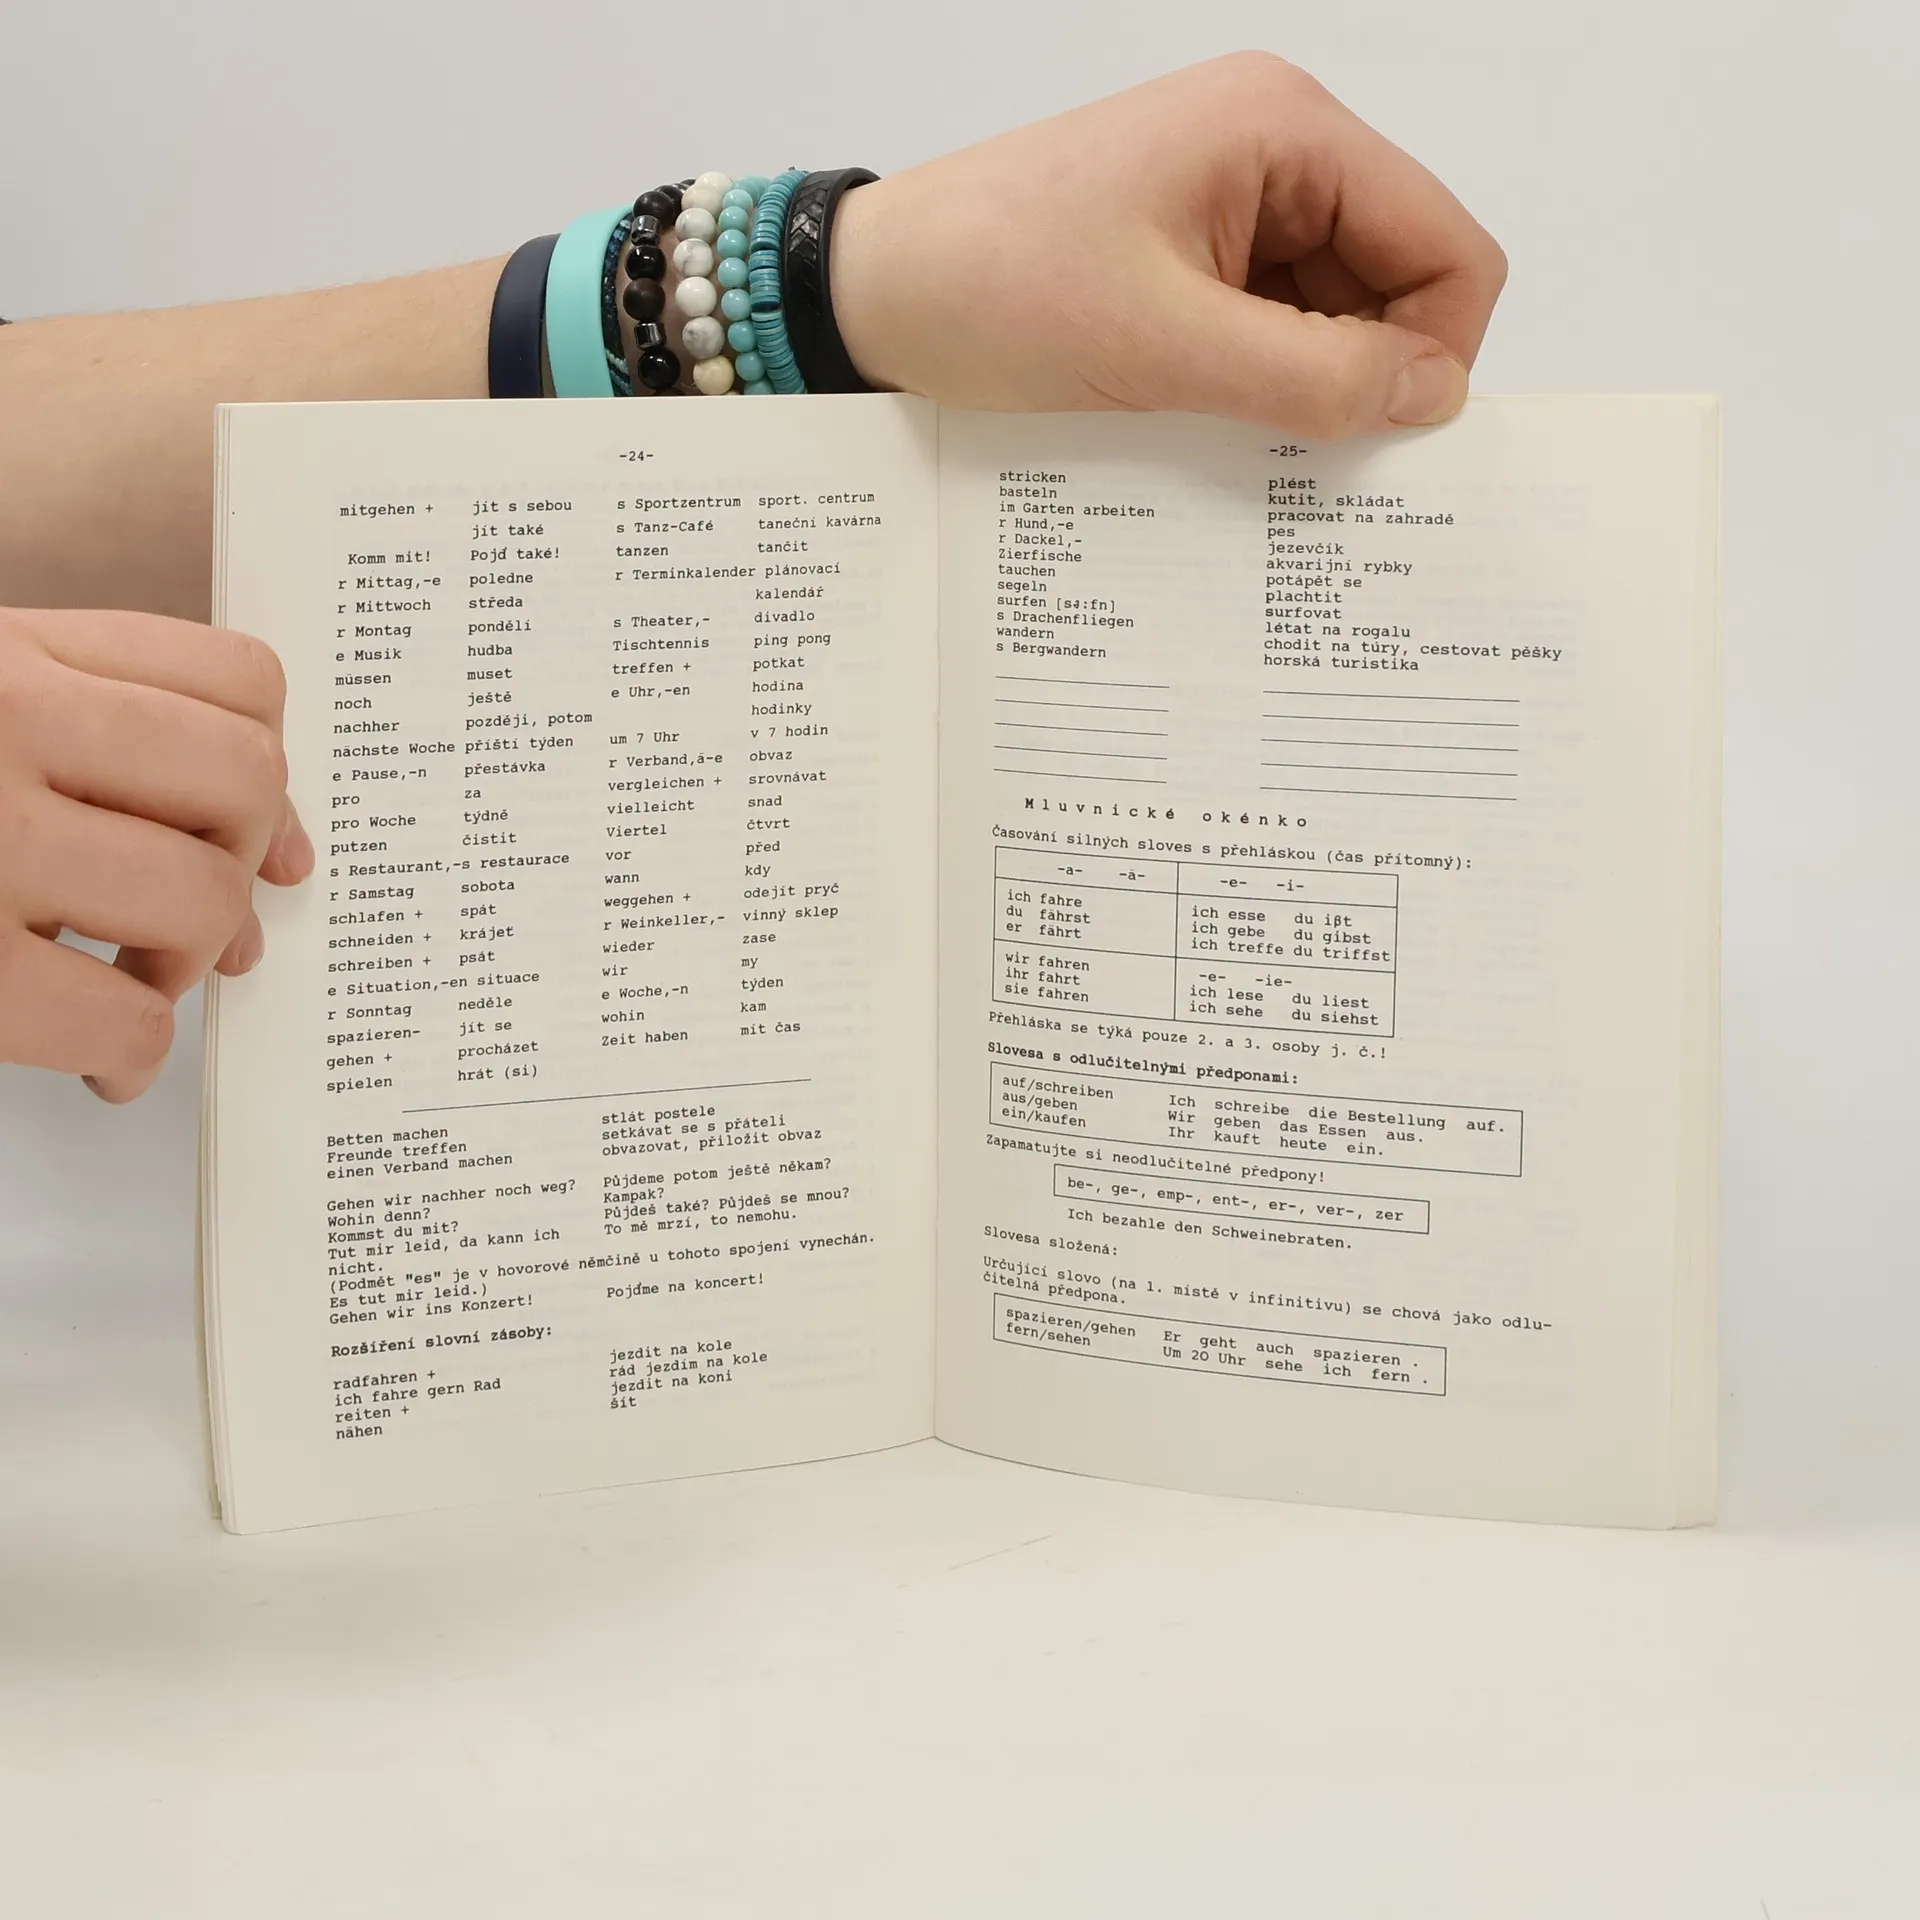 -24-
mitgehen + jít s sebou s Sportzentrum sport. centrum
jít také s Tanz-Café taneční kavárna
Komm mit! Pojď také! tanzen tančit
r Mittag,-e poledne r Terminkalender plánovací
r Mittwoch středa kalendář
r Montag pondělí s Theater,- divadlo
e Musik hudba Tischtennis ping pong
müssen muset treffen + potkat
noch ještě e Uhr,-en hodina
nachher později, potom hodinky
nächste Woche příští týden um 7 Uhr v 7 hodin
e Pause,-n přestávka r Verband,ä-e obvaz
pro za vergleichen + srovnávat
pro Woche týdně vielleicht snad
putzen čistit Viertel čtvrt
s Restaurant,-s restaurace vor před
r Samstag sobota wann kdy
schlafen + spát weggehen + odejít pryč
schneiden + krájet r Weinkeller,- vinný sklep
schreiben + psát wieder zase
e Situation,-en situace wir my
r Sonntag neděle e Woche,-n týden
spazieren- jít se wohin kam
gehen + procházet Zeit haben mít čas
spielen hrát (si)
Betten machen stlát postele
Freunde treffen setkávat se s přáteli
einen Verband machen obvazovat, přiložit obvaz
Gehen wir nachher noch weg? Půjdeme potom ještě někam?
Wohin denn? Kampak?
Kommst du mit? Půjdeš také? Půjdeš se mnou?
Tut mir leid, da kann ich To mě mrzí, to nemohu.
nicht.
(Podmět "es" je v hovorové němčině u tohoto spojení vynechán.
Es tut mir leid.)
Gehen wir ins Konzert! Pojďme na koncert!
Rozšíření slovní zásoby:
radfahren + jezdit na kole
ich fahre gern Rad rád jezdím na kole
reiten + jezdit na koni
nähen šít
-25-
stricken plést
basteln kutit, skládat
im Garten arbeiten pracovat na zahradě
r Hund,-e pes
r Dackel,- jezevčík
Zierfische akvarijní rybky
tauchen potápět se
segeln plachtit
surfen [sə:fn] surfovat
s Drachenfliegen létat na rogalu
wandern chodit na túry, cestovat pěšky
s Bergwandern horská turistika
Mluvnické okénko
Časování silných sloves s přehláskou (čas přítomný):
-a- -ä- -e- -i-
ich fahre ich esse du ißt
du fährst ich gebe du gibst
er fährt ich treffe du triffst
wir fahren -e- -ie-
ihr fahrt ich lese du liest
sie fahren ich sehe du siehst
Přehláska se týká pouze 2. a 3. osoby j. č.!
Slovesa s odlučitelnými předponami:
auf/schreiben Ich schreibe die Bestellung auf.
aus/geben Wir geben das Essen aus.
ein/kaufen Ihr kauft heute ein.
Zapamatujte si neodlučitelné předpony!
be-, ge-, emp-, ent-, er-, ver-, zer
Ich bezahle den Schweinebraten.
Slovesa složená:
Určující slovo (na 1. místě v infinitivu) se chová jako odlu-
čitelná předpona.
spazieren/gehen Er geht auch spazieren .
fern/sehen Um 20 Uhr sehe ich fern .